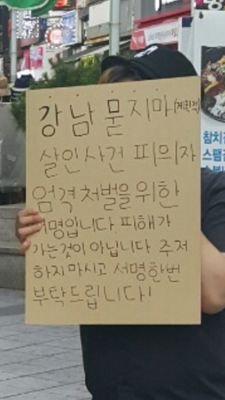 강남 묻지마(계획적)
살인사건 피의자
엄격처벌을 위한
서명입니다. 피해가
가는것이 아닙니다. 주저
하지마시고 서명한번
부탁드립니다!
참치
스팸